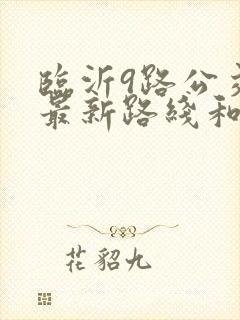 臨沂9路公交
最新路綫和
花貂九